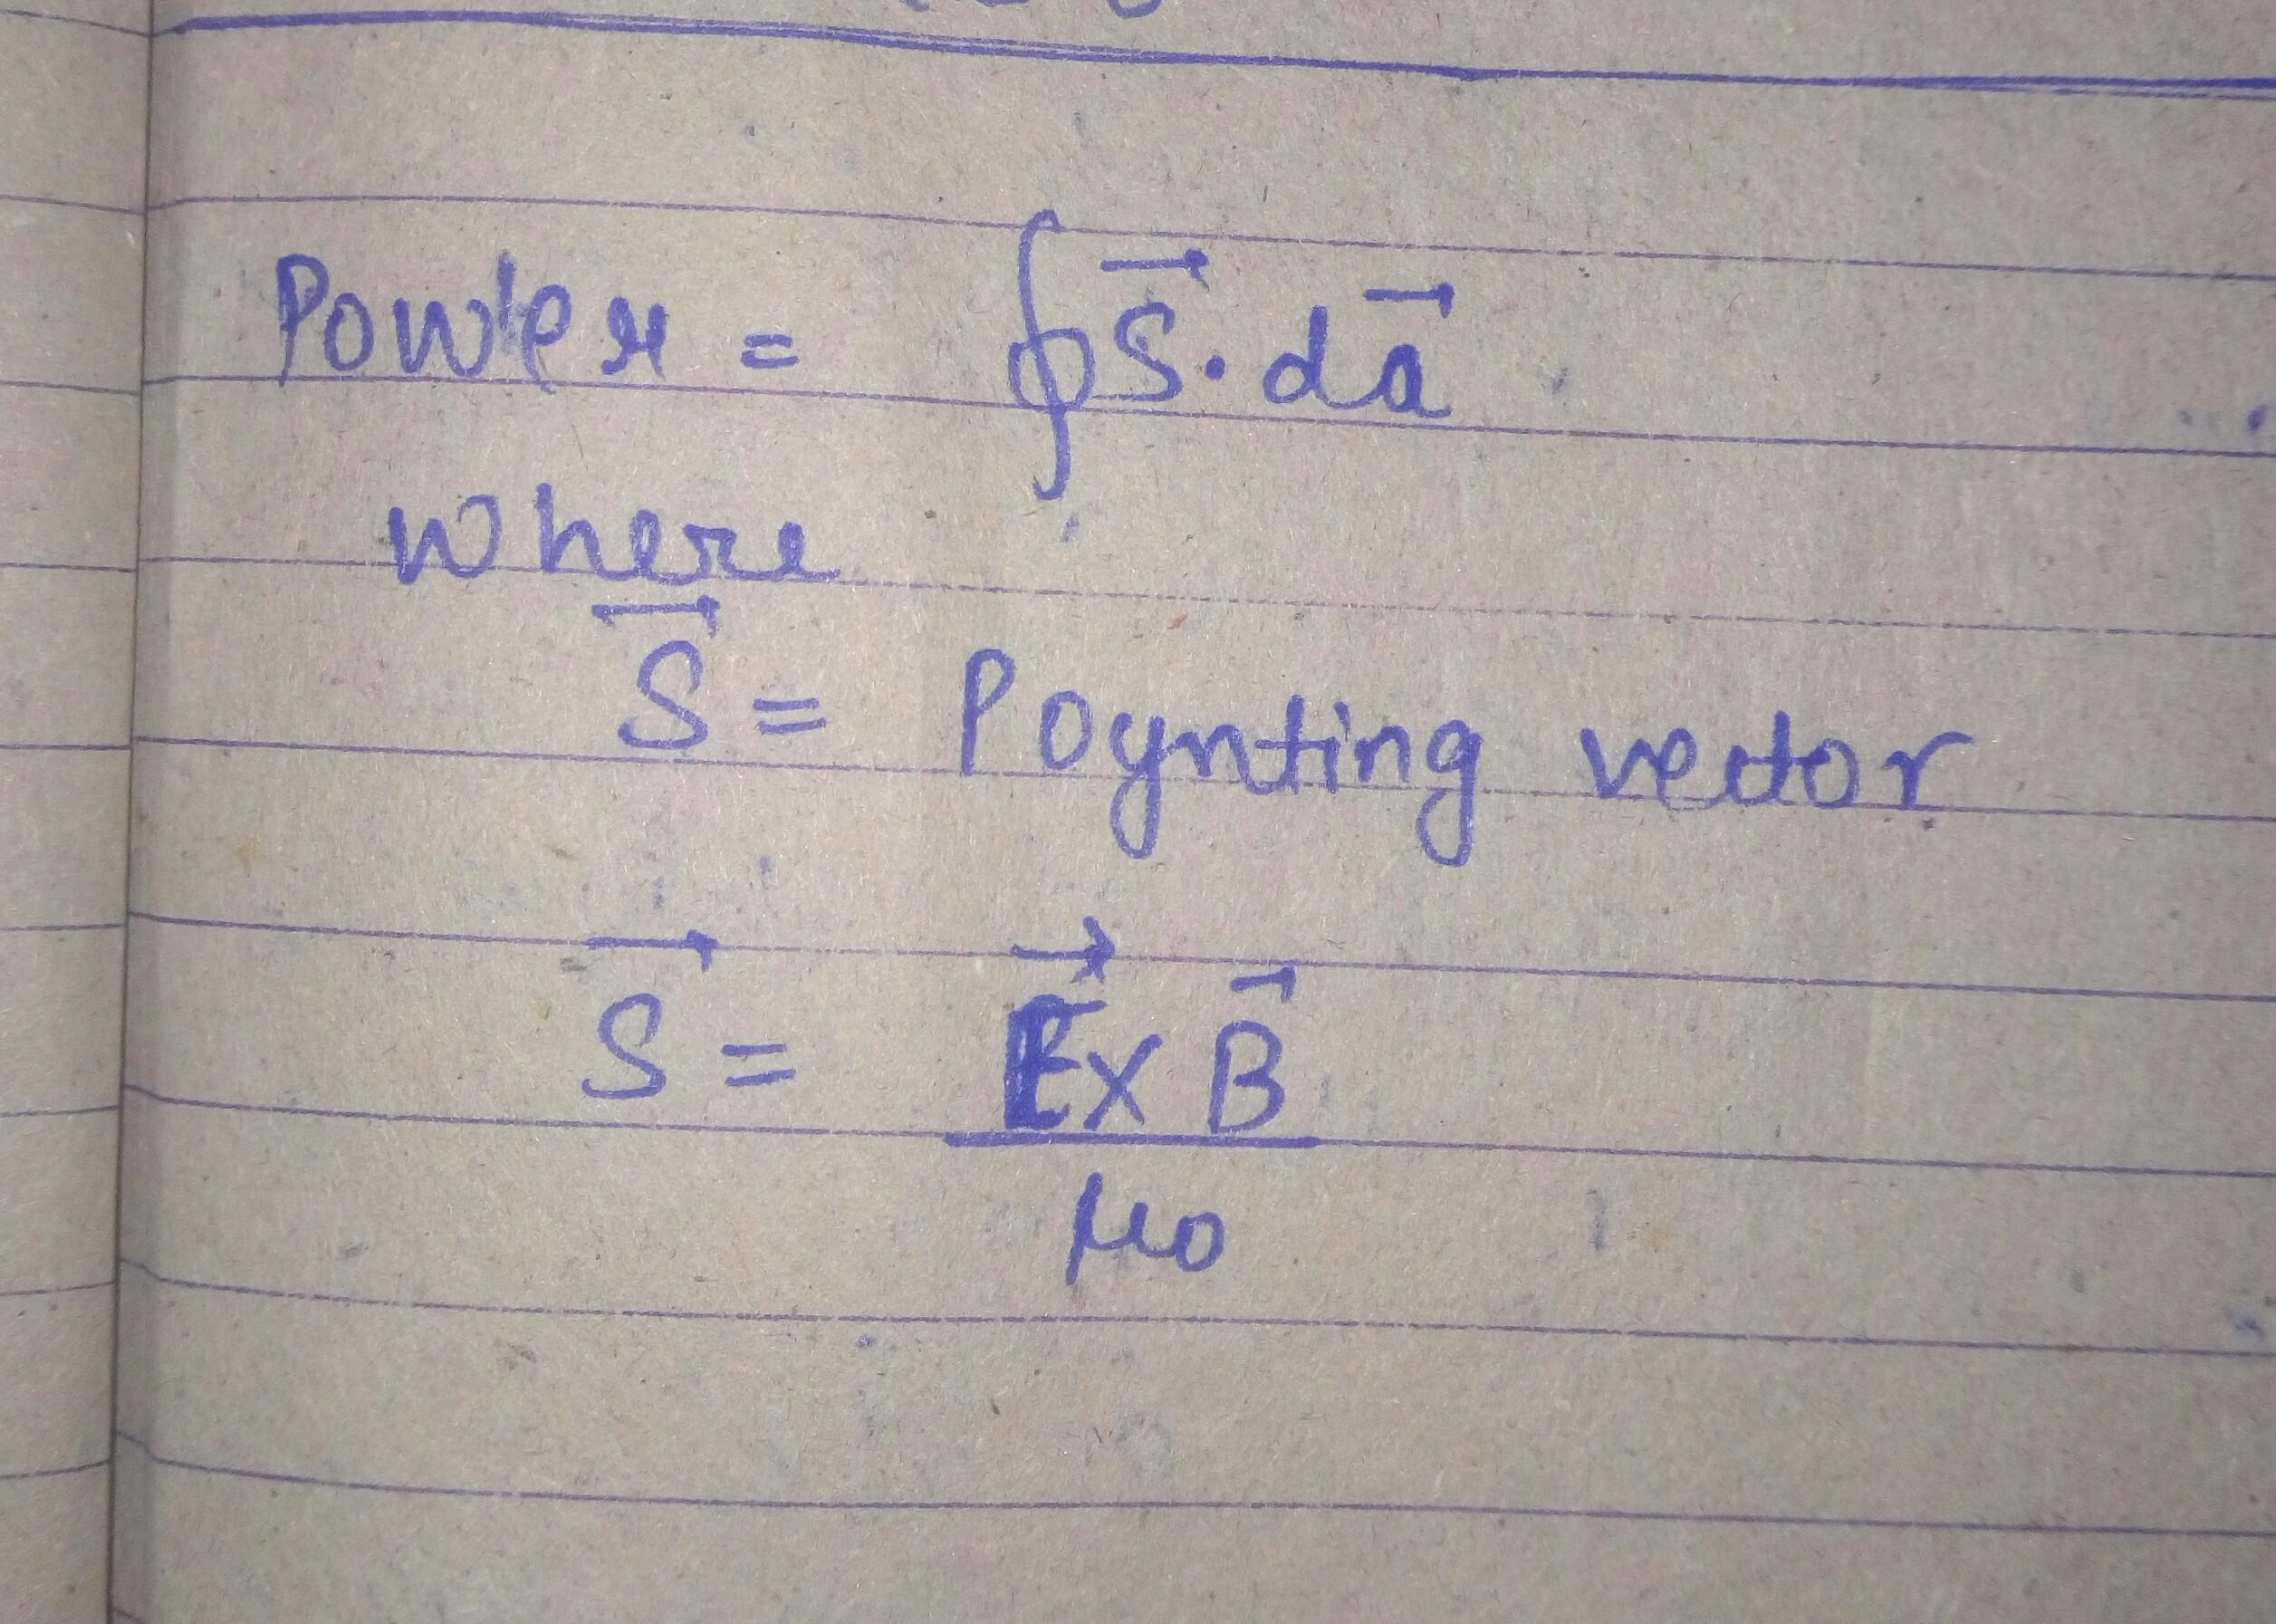 Power = ∮ S⃗ . da⃗
where
S⃗ = Poynting vector
S⃗ = E⃗ x B⃗
μ0